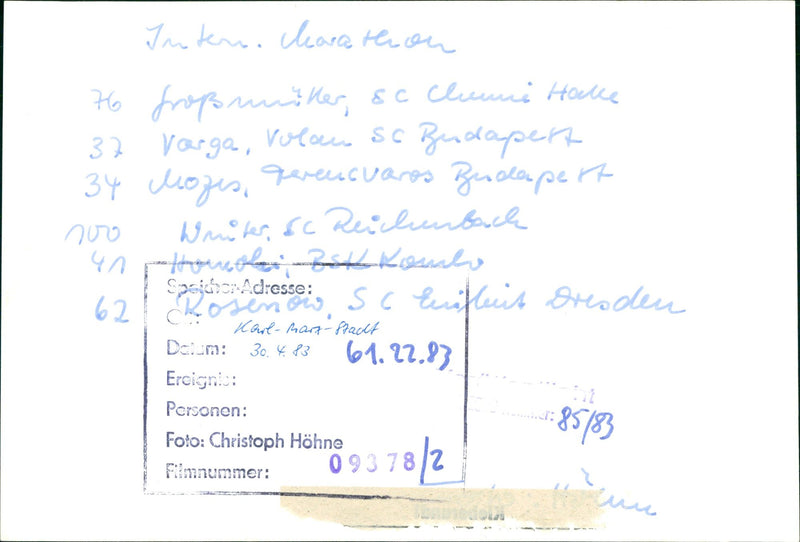 Intern. Marathon
76 Großmüller, SC Chemie Halle
37 Varga, Volan SC Budapest
34 Mozes, Ferencvaros Budapest
100 Winter, SC Reichenbach
41 BSK Kamlo
62 Rosenow, SC Einheit Dresden
Speicher-Adresse:
Ort: Karl-Marx-Stadt
Datum: 30.4.83 61.22.83
Ereignis:
Personen:
Foto: Christoph Höhne
Filmnummer: 09378/2
85/83